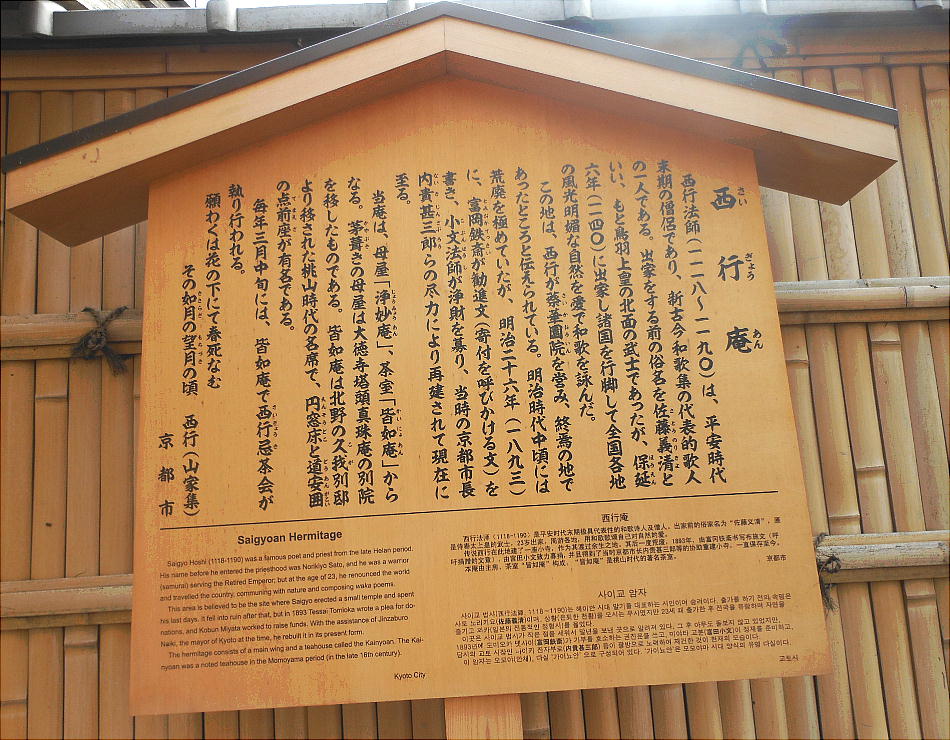 西行庵
西行法師(一一一八〜一一九〇)は、平安時代
末期の僧侶であり、新古今和歌集の代表的歌人
の一人である。出家をする前の俗名を佐藤義清と
いい、もと鳥羽上皇の北面の武士であったが、保延
六年(一一四〇)に出家し諸国を行脚して全国各地
の風光明媚な自然を愛で和歌を詠んだ。
この地は、西行が蔡華園院を営み、終焉の地で
あったところと伝えられている。明治時代中頃には
荒廃を極めていたが、明治二十六年(一八九三)
に、富岡鉄斎が勧進文(寄付を呼びかける文)を
書き、小文法師が浄財を募り、当時の京都市長
内貴甚三郎らの尽力により再建されて現在に
至る。
当庵は、母屋「浄妙庵」、茶室「皆如庵」から
なる。茅葺きの母屋は大徳寺塔頭真珠庵の別院
を移したものである。皆如庵は北野の久我別邸
より移された桃山時代の名席で、円窓床と道安囲
の点前座が有名である。
毎年三月中旬には、皆如庵で西行忌茶会が
執り行われる。
願わくは花の下にて春死なむ
その如月の望月の頃 西行(山家集)
京都市
Saigyoan Hermitage
Saigyo Hoshi (1118-1190) was a famous poet and priest from the late Heian period.
His name before he entered the priesthood was Norikiyo Sato, and he was a warrior
(samurai) serving the Retired Emperor; but at the age of 23, he renounced the world
and travelled the country, communing with nature and composing waka poems.
This area is believed to be the site where Saigyo erected a small temple and spent
his last days. It fell into ruin after that, but in 1893 Tessai Tomioka wrote a plea for do-
nations, and Kobun Miyata worked to raise funds. With the assistance of Jinzaburo
Naiki, the mayor of Kyoto at the time, he rebuilt it in its present form.
The hermitage consists of a main wing and a teahouse called the Kainyoan. The Kai-
nyoan was a noted teahouse in the Momoyama period (in the late 16th century).
Kyoto City
西行庵
西行法师(1118-1190)是平安时代末期极具代表性的和歌诗人及僧人。出家前的俗家名为“佐藤义清”,原
是侍奉太上皇的武士。23岁出家,周游各地,用和歌歌颂自己对自然的爱。
传说西行在此地建了一座小寺,作为其渡过余生之地。其后一度荒废,1893年,由富冈铁斋书写布施文(呼
吁捐赠的文章),由宫田小文致力募捐,并且得到了当时京都市长内贵甚三郎等的协助重建小寺,一直保存至今。
本庵由主房、茶室“皆如庵”构成,“皆如庵”是桃山时代的著名茶室。
京都市
사이교 암자
교토시